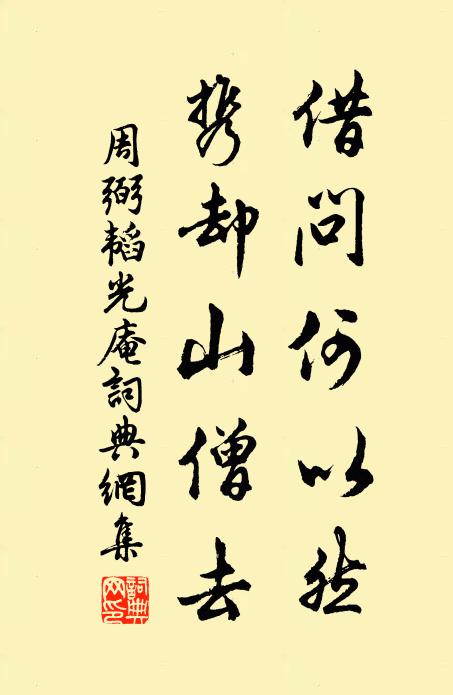 借问何以然
携却山僧去
周弼韬光庵詞典網集
詞典網印